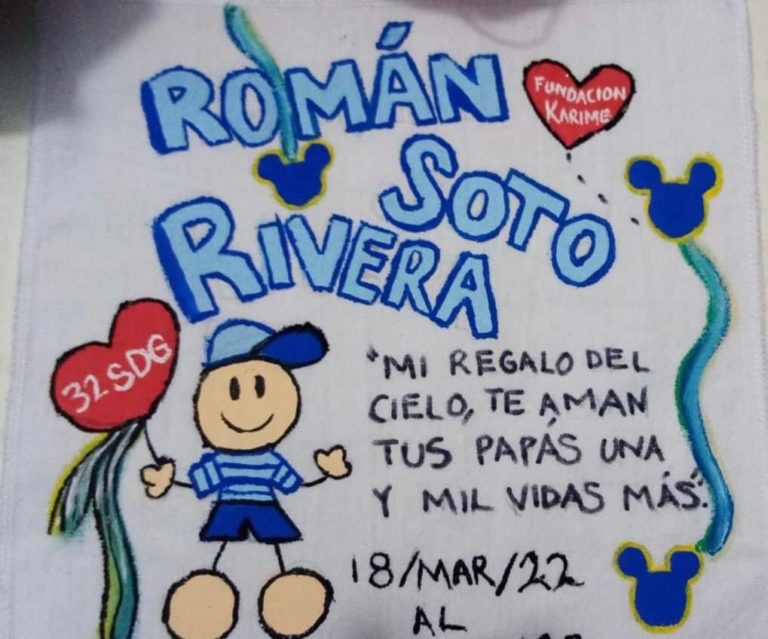 ROMÁN
SOTO
RIVERA
FUNDACION
KARIME
32 SDG
"MI REGALO DEL
CIELO, TE AMAN
TUS PAPÁS UNA
Y MIL VIDAS MÁS".
18/MAR/22
AL